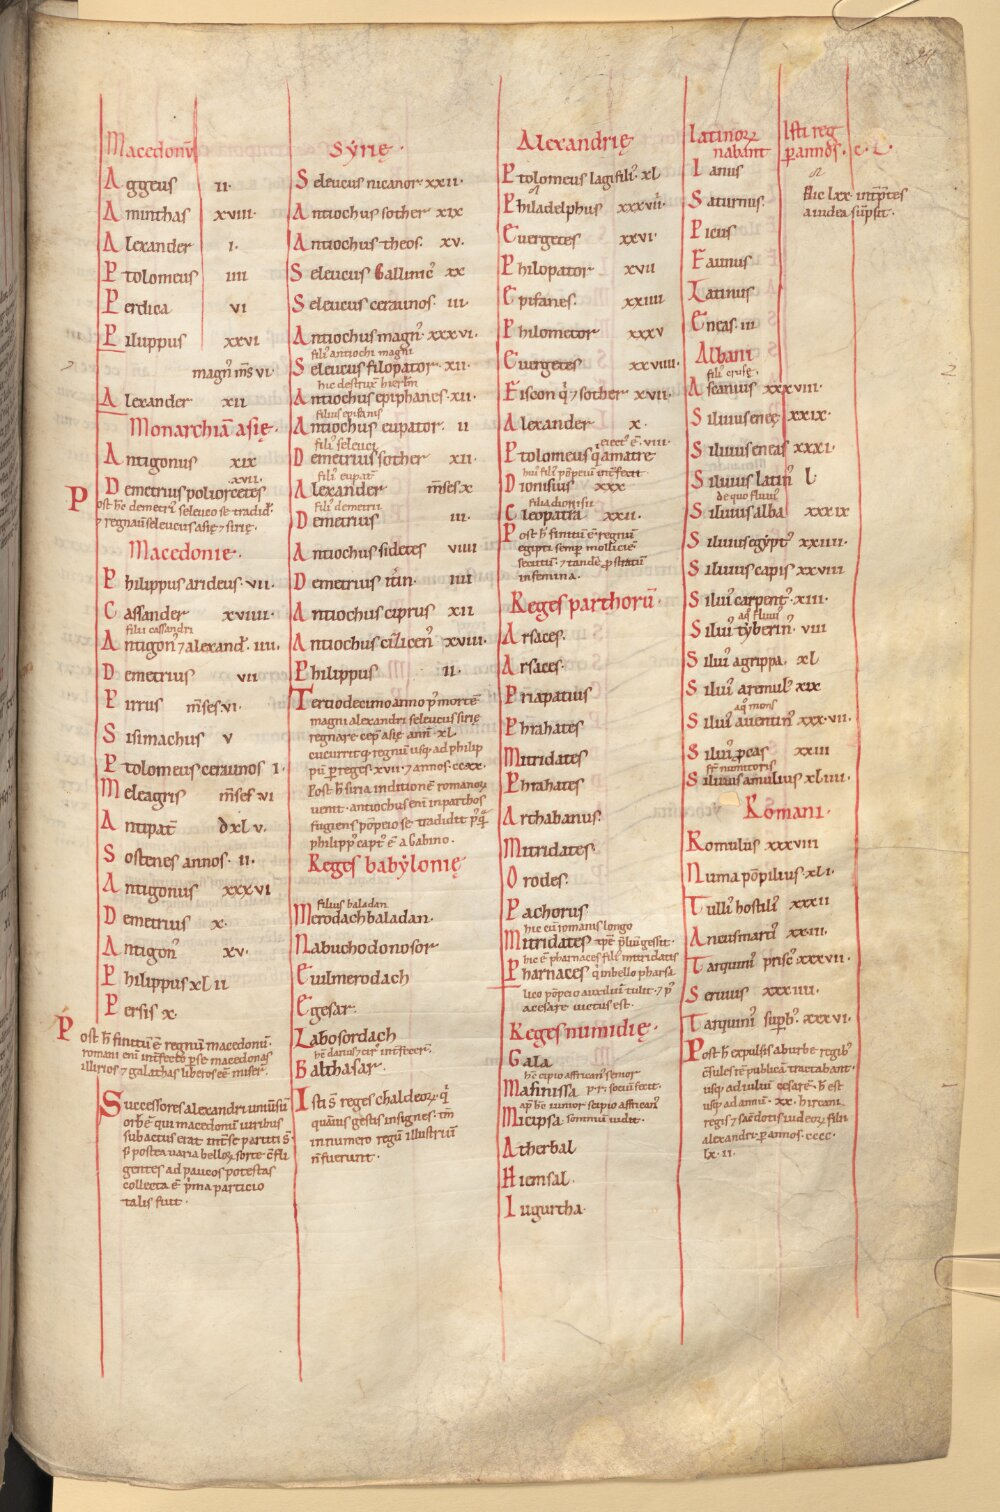 Macedonū
Aggeus II·
Aminthas XVIII·
Alexander I·
Ptolomeus IIII
Perdica VI
Piluppus XXVI
magn᷒ m̄s VI·
Alexander XII
Monarchiā asię·
Antigonus XIX
XVII·
Demetrius poliorcetes
Post h̄ demetri᷒ seleuco se tradid᷒
⁊ regnau᷒ seleucus asię ⁊ sirię·
Macedonię·
Philippus arideus· VII·
Cassander XVIIII·
filii cassandri
Antigon᷒ ⁊ alexand᷒· IIII·
Demetrius VII
Pirrus m̄ses· VI·
Sisimachus V
Ptolomeus ceraunos I·
Meleagris m̄ses· VI
Antipat᷒ dxl v·
Sostenes annos· II·
Antigonus XXXVI
Demetrius X·
Antigon᷒ XV·
Philippus XLII
Persis X·
Post h̄ finitū ē regnū macedonū·
romani eni᷒ int̄fecto p̄se macedonas
illirios ⁊ galathas liberos eē̄ miser᷒·
Successores alexandri uniūsū
orbē qui macedonū uiribus
subactus erat int̄ se partiti s̄
s; postea uaria belloꝝ sorte c̄fli
gentes ad paucos potestas
collecta ē p᷒ma particio
talis fuit·
Sÿrię·
Seleucus nicanor XXII·
Antiochus sother XIX
Antiochus theos· XV·
Seleucus Gallinic᷒ XX
Seleucus ceraunos· III·
Antiochus magn᷒· XXXVI·
fili᷒ antiochi magni
Seleucus filopator· XII·
hic destrux᷒ hierl̄m
Antiochus epiphanes· XII·
filius epifanis
Antiochus eupator· II
fili᷒ seleuci
Demetrius sother XII·
fili᷒ eupat᷒
Alexander m̄ses X
fili᷒ demetrii
Demetrius III·
Antiochus sidetes VIIII
Demetrius it̄m· IIII
Antiochus ciprus XII
Antiochus ci᷒licen᷒ XVIII·
Philippus II·
Tertiodecimo anno p᷒ mortē
magni alexandri seleucus sirię
regnare cep᷒ asię ann᷒· XL·
cucurritq; regnū usq; ad philip
pū p̱ reges· XVII· ⁊ annos· CCXX·
Post h̄ siria in ditionē romanoꝝ
uenit· antiochus eni᷒ in parthos
fugiens pōpeio se tradidit
philipp᷒ capt᷒ ē a Gabino·
Reges babÿlonię
filius baladan
Merodach baladan·
Nabuchodonosor
Euilmerodach
Egesar·
Labosordach
h᷒c darius ⁊ cir᷒ int̄fecer᷒·
Balthasar·
Isti s̄ reges chaldeoꝝ q᷒
quāuis gestis insignes· tm̄
in numero regū illustriū
n̄ fuerunt·
Alexandrię
Ptolomeus lagi fili᷒· XL·
Philadelphus XXXVII·
Euergetes XXVI·
Philopator XVII
Epifanes· XXIIII
Philometor XXXV
Euergetes XXVIIII·
Fiscon q᷒ ⁊ sother XVII·
Alexander X·
eiect᷒ ē· VIII·
Ptolomeus q᷒ a matre
hui᷒ fili᷒ pōpeiū int̄fecit
Dionisius XXX
filia dionisii
Cleopatra XXII·
Post h̄ finitū ē regnū
egipti semp̱ molliciē
secutū· ⁊ tandē p̱stratū
in femina·
Reges parthorū·
Arsaces·
Arsaces·
Priapatius
Phrahates
Mitridates
Phrahates
Arthabanus·
Mitridates·
Orodes·
Pachorus
hic cū romanis longo
Mitridates tp̄e p̄liū gessit·
hic ē pharnaces fili᷒ mitridatis
Pharnaces q᷒ in bello pharsa
lico pōpeio auxiliū tulit· ⁊ p᷒
a cesare uictus est·
Reges numidię·
Gala
h᷒c cipio affrican᷒ senior
Masinissa p·r· sociū fecit·
ap᷒ hc̄ iunior scipio affrican᷒
Micipsa somniū uidit·
Atherbal
Hiemsal·
Iugurtha·
Latinoꝝ
Ianus
Saturnus·
Picus
Faunus
Latinus
Eneas· III
Albani
fili᷒ crusę·
Ascanius XXXVIII·
Siluius eneę XXIX·
Siluius eneas XXXI·
Siluius latin᷒ L·
de quo fluui᷒
Siluius alba XXXIX
Siluius egÿpt᷒ XXIIII·
Siluius capis XXVIII
Silui᷒ carpent᷒· XIII·
a q᷒ fluui᷒
Silui᷒ tÿberin᷒· VIII
Silui᷒ agrippa· XL
Silui᷒ aremul᷒ XIX
a q᷒ mons
Silui᷒ auentin᷒ XXXVII·
Silui᷒ p̱cas XXIII
fr̄ numitoris
Siluius amulius XLIIII·
Romani·
Romulus XXXVIII
Numa pōpilius· XLI·
Tulli᷒ hostili᷒ XXXII
Ancus marci᷒ XXIII·
Tarquini᷒ prisc᷒ XXXVII·
Seruius XXXIIII·
Tarquini᷒ sup̱b᷒· XXXVI·
Post h̄ expulsis ab urbe regib᷒
c̄sules rē publicā tractabant·
usq; ad iuliū cesarē· h̄ est
usq; ad annū· XX· hircani
regis ⁊ sac̄dotis iudeoꝝ filii
alexandri· p̱ annos· CCCC·
LX·II·
Isti reg
nabant
p̱ annos·
Hic LXX· int̄p̄tes
a iudea sūpsit·